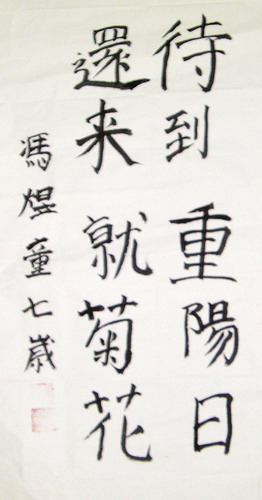 待到重陽日
還来就菊花
馮煜童七歲